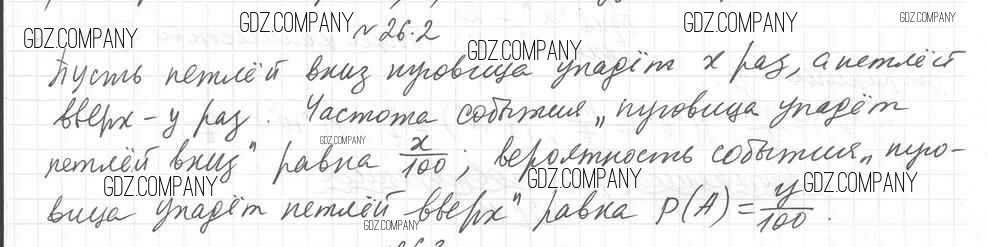 № 26.2
Пусть петлёй вниз пуговица упадёт x раз, а петлёй
вверх – y раз. Частота события „пуговица упадёт
петлёй вниз" равна x/100; вероятность события „пуго-
вица упадёт петлёй вверх" равна P(A) = y/100.
GDZ.COMPANY
GDZ.COMPANY
GDZ.COMPANY
GDZ.COMPANY
GDZ.COMPANY
GDZ.COMPANY
GDZ.COMPANY
GDZ.COMPANY
GDZ.COMPANY
GDZ.COMPANY